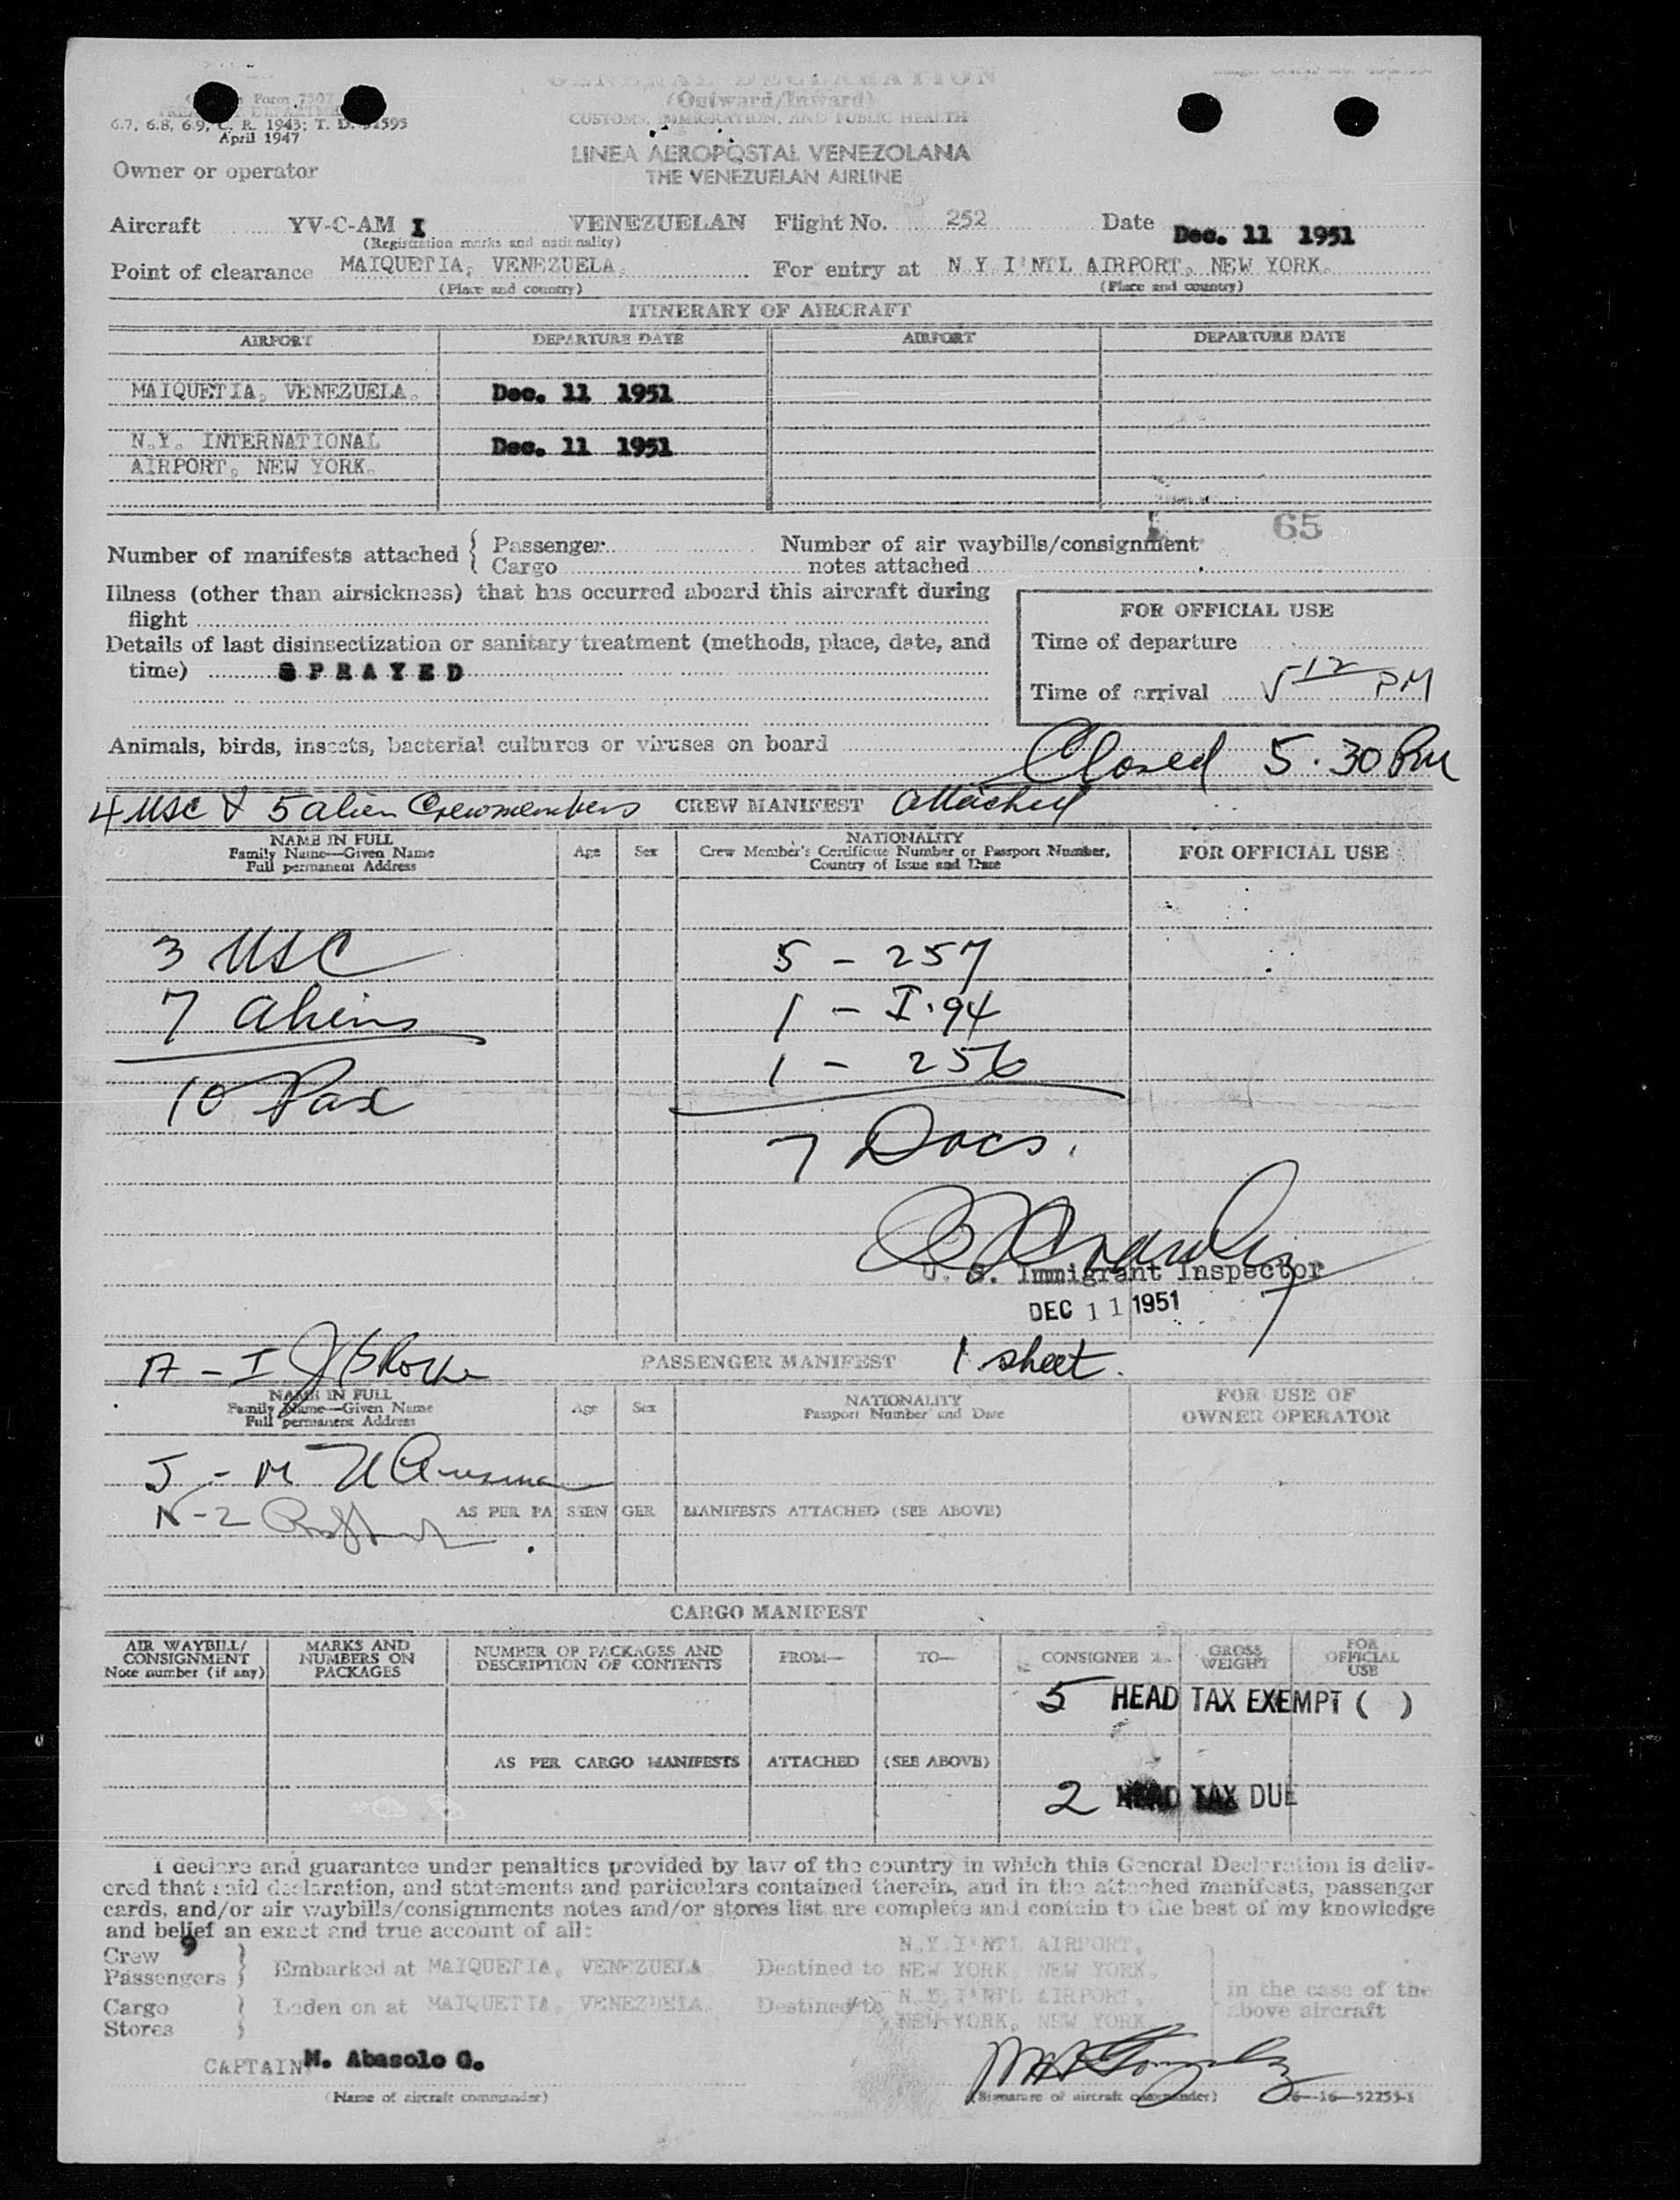 GENERAL DECLARATION
(Outward/Inward)
CUSTOMS, IMMIGRATION, AND PUBLIC HEALTH
Form 7507
TREASURY DEPARTMENT
6.7, 6.8, 6.9, C. R. 1943; T. D. 51595
April 1947
LINEA AEROPOSTAL VENEZOLANA
THE VENEZUELAN AIRLINE
Owner or operator
Aircraft YV-C-AM I VENEZUELAN Flight No. 252 Date Dec. 11 1951
(Registration marks and nationality)
Point of clearance MAIQUETIA, VENEZUELA. For entry at N.Y.I'NTL AIRPORT, NEW YORK.
(Place and country) (Place and country)
ITINERARY OF AIRCRAFT
AIRPORT DEPARTURE DATE AIRPORT DEPARTURE DATE
MAIQUETIA, VENEZUELA. Dec. 11 1951
N.Y. INTERNATIONAL Dec. 11 1951
AIRPORT, NEW YORK.
65
Number of manifests attached { Passenger Number of air waybills/consignment
Cargo notes attached
Illness (other than airsickness) that has occurred aboard this aircraft during
flight
FOR OFFICIAL USE
Details of last disinsectization or sanitary treatment (methods, place, date, and
time) SPRAYED
Time of departure
Time of arrival 5 12 PM
Animals, birds, insects, bacterial cultures or viruses on board
Closed 5.30 PM
4 USC & 5 alien Crewmembers CREW MANIFEST attached
NAME IN FULL
Family Name—Given Name
Full permanent Address
Age Sex
NATIONALITY
Crew Member's Certificate Number or Passport Number,
Country of Issue and Date
FOR OFFICIAL USE
3 USC 5 - 257
7 aliens 1 - I.94
1 - 256
10 Pax
7 Docs.
U. S. Immigrant Inspector
DEC 11 1951
PASSENGER MANIFEST 1 sheet.
NAME IN FULL
Family Name—Given Name
Full permanent Address
Age Sex
NATIONALITY
Passport Number and Date
FOR USE OF
OWNER OPERATOR
N-2
AS PER PASSENGER MANIFESTS ATTACHED (SEE ABOVE)
CARGO MANIFEST
AIR WAYBILL/
CONSIGNMENT
Note number (if any)
MARKS AND
NUMBERS ON
PACKAGES
NUMBER OF PACKAGES AND
DESCRIPTION OF CONTENTS
FROM— TO— CONSIGNEE
GROSS
WEIGHT
FOR
OFFICIAL
USE
5 HEAD TAX EXEMPT ( )
AS PER CARGO MANIFESTS ATTACHED (SEE ABOVE)
2 HEAD TAX DUE
I declare and guarantee under penalties provided by law of the country in which this General Declaration is deliv-
ered that said declaration, and statements and particulars contained therein, and in the attached manifests, passenger
cards, and/or air waybills/consignments notes and/or stores list are complete and contain to the best of my knowledge
and belief an exact and true account of all:
Crew 9
Passengers } Embarked at MAIQUETIA, VENEZUELA Destined to N.Y.I'NTL AIRPORT, NEW YORK, NEW YORK.
Cargo
Stores } Laden on at MAIQUETIA, VENEZUELA. Destined to N.Y.I'NTL AIRPORT, NEW YORK, NEW YORK
in the case of the
above aircraft
CAPTAIN M. Abasolo G.
(Name of aircraft commander) (Signature of aircraft commander) 16—52253-1